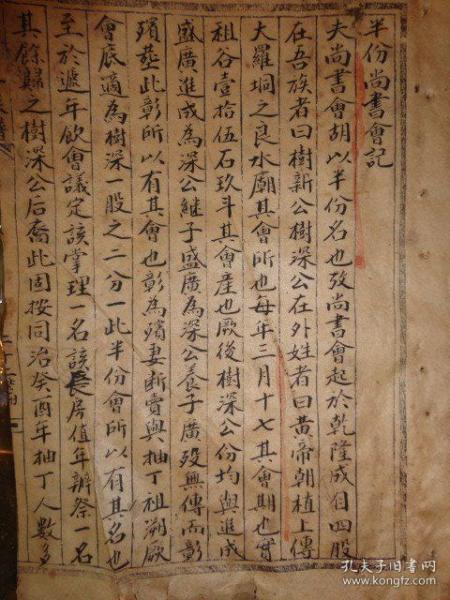 半份尚書會記
夫尚書會胡以半份名也攷尚書會起於乾隆成自四股
在吾族者曰樹新公樹深公在外姓者曰黃帝朝植上傳
大羅垌之良水廟其會所也每年三月十七其會期也實
祖谷壹拾伍石玖斗其會產也厥後樹深公份均與進成
盛廣進成為深公継子盛廣為深公養子廣殁無傳而彰
殯塟此彰所以有其會也彰為殯妻断賣與抽丁祖溯厥
會底適為樹深一股之二分一此半份會所以有其名也
至於遞年飲會議定該掌理一名該長房值年辦祭一名
其餘歸之樹深公后裔此固按同治癸酉年抽丁人數多
孔夫子旧书网
www.kongfz.com